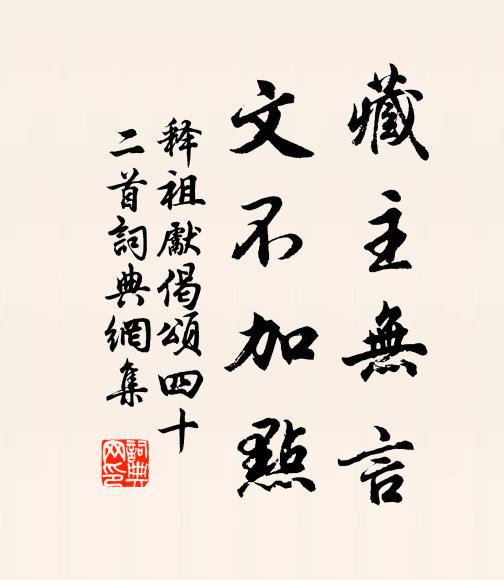 藏主無言
文不加點
释祖獻偈頌四十
二首詞典網集
詞典
网印